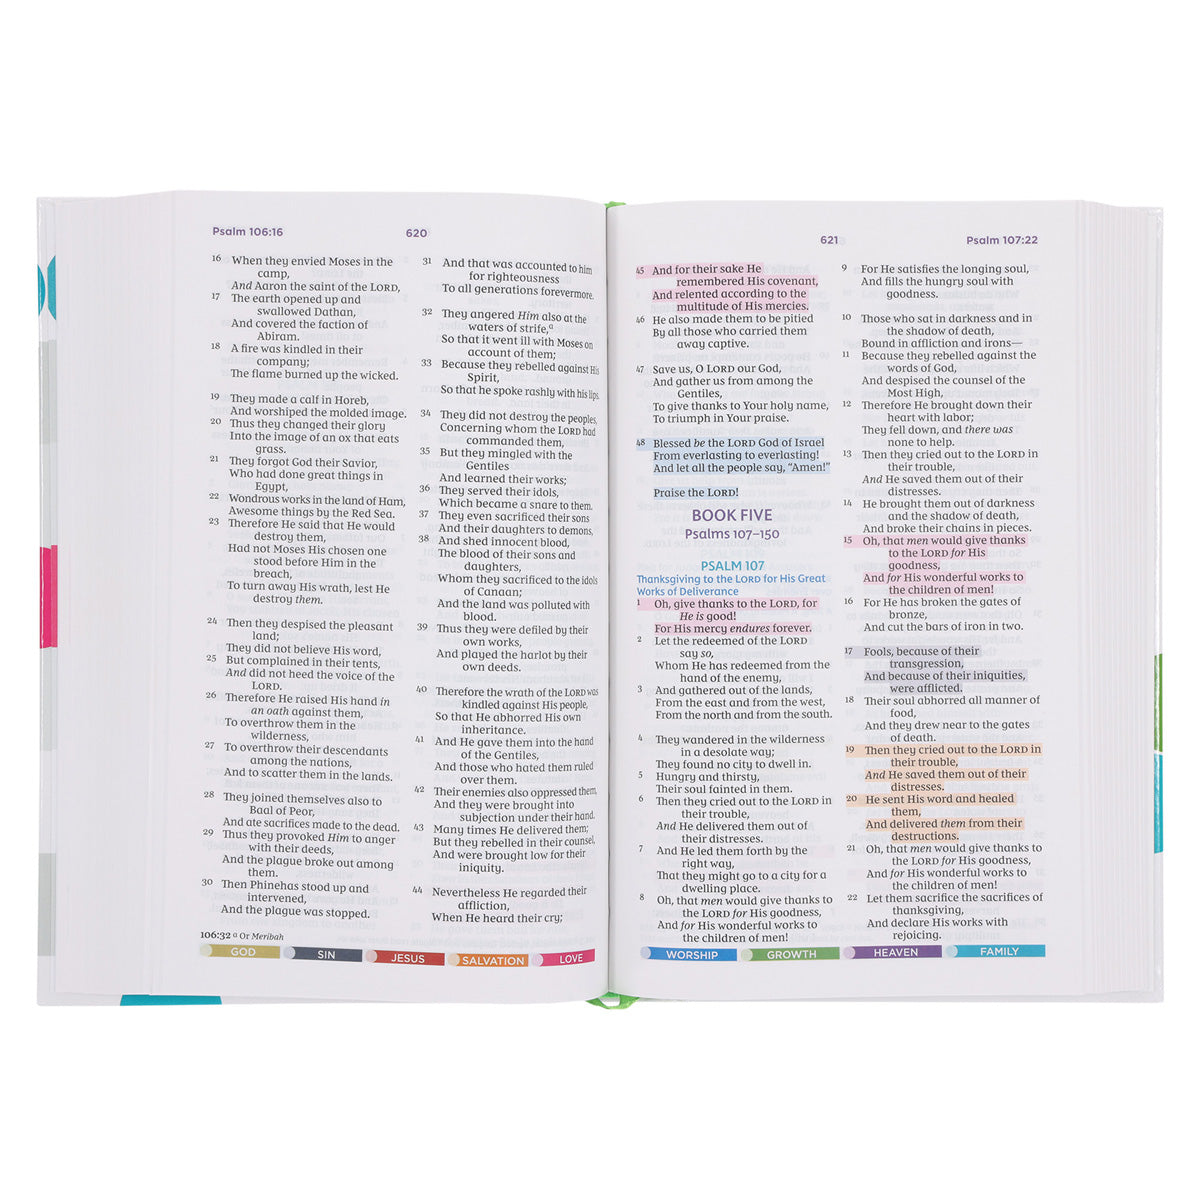 Psalm 106:16
620
16 When they envied Moses in the
camp,
And Aaron the saint of the LORD,
17 The earth opened up and
swallowed Dathan,
And covered the faction of
Abiram.
18 A fire was kindled in their
company;
The flame burned up the wicked.
19 They made a calf in Horeb,
And worshiped the molded image.
20 Thus they changed their glory
Into the image of an ox that eats
grass.
21 They forgot God their Savior,
Who had done great things in
Egypt,
22 Wondrous works in the land of Ham,
Awesome things by the Red Sea.
23 Therefore He said that He would
destroy them,
Had not Moses His chosen one
stood before Him in the
breach,
To turn away His wrath, lest He
destroy them.
24 Then they despised the pleasant
land;
They did not believe His word,
25 But complained in their tents,
And did not heed the voice of the
LORD.
26 Therefore He raised His hand in
an oath against them,
To overthrow them in the
wilderness,
27 To overthrow their descendants
among the nations,
And to scatter them in the lands.
28 They joined themselves also to
Baal of Peor,
And ate sacrifices made to the dead.
29 Thus they provoked Him to anger
with their deeds,
And the plague broke out among
them.
30 Then Phinehas stood up and
intervened,
And the plague was stopped.
31 And that was accounted to him
for righteousness
To all generations forevermore.
32 They angered Him also at the
waters of strife,a
So that it went ill with Moses on
account of them;
33 Because they rebelled against His
Spirit,
So that he spoke rashly with his lips.
34 They did not destroy the peoples,
Concerning whom the LORD had
commanded them,
35 But they mingled with the
Gentiles
And learned their works;
36 They served their idols,
Which became a snare to them.
37 They even sacrificed their sons
And their daughters to demons,
38 And shed innocent blood,
The blood of their sons and
daughters,
Whom they sacrificed to the idols
of Canaan;
And the land was polluted with
blood.
39 Thus they were defiled by their
own works,
And played the harlot by their
own deeds.
40 Therefore the wrath of the LORD was
kindled against His people,
So that He abhorred His own
inheritance.
41 And He gave them into the hand
of the Gentiles,
And those who hated them ruled
over them.
42 Their enemies also oppressed them,
And they were brought into
subjection under their hand.
43 Many times He delivered them;
But they rebelled in their counsel,
And were brought low for their
iniquity.
44 Nevertheless He regarded their
affliction,
When He heard their cry;
106:32 a Or Meribah
GOD SIN JESUS SALVATION LOVE
621
Psalm 107:22
45 And for their sake He
remembered His covenant,
And relented according to the
multitude of His mercies.
46 He also made them to be pitied
By all those who carried them
away captive.
47 Save us, O LORD our God,
And gather us from among the
Gentiles,
To give thanks to Your holy name,
To triumph in Your praise.
48 Blessed be the LORD God of Israel
From everlasting to everlasting!
And let all the people say, “Amen!”
Praise the LORD!
BOOK FIVE
Psalms 107–150
PSALM 107
Thanksgiving to the LORD for His Great
Works of Deliverance
1 Oh, give thanks to the LORD, for
He is good!
For His mercy endures forever.
2 Let the redeemed of the LORD
say so,
Whom He has redeemed from the
hand of the enemy,
3 And gathered out of the lands,
From the east and from the west,
From the north and from the south.
4 They wandered in the wilderness
in a desolate way;
They found no city to dwell in.
5 Hungry and thirsty,
Their soul fainted in them.
6 Then they cried out to the LORD in
their trouble,
And He delivered them out of
their distresses.
7 And He led them forth by the
right way,
That they might go to a city for a
dwelling place.
8 Oh, that men would give thanks to
the LORD for His goodness,
And for His wonderful works to
the children of men!
9 For He satisfies the longing soul,
And fills the hungry soul with
goodness.
10 Those who sat in darkness and in
the shadow of death,
Bound in affliction and irons—
11 Because they rebelled against the
words of God,
And despised the counsel of the
Most High,
12 Therefore He brought down their
heart with labor;
They fell down, and there was
none to help.
13 Then they cried out to the LORD in
their trouble,
And He saved them out of their
distresses.
14 He brought them out of darkness
and the shadow of death,
And broke their chains in pieces.
15 Oh, that men would give thanks
to the LORD for His
goodness,
And for His wonderful works to
the children of men!
16 For He has broken the gates of
bronze,
And cut the bars of iron in two.
17 Fools, because of their
transgression,
And because of their iniquities,
were afflicted.
18 Their soul abhorred all manner of
food,
And they drew near to the gates
of death.
19 Then they cried out to the LORD in
their trouble,
And He saved them out of their
distresses.
20 He sent His word and healed
them,
And delivered them from their
destructions.
21 Oh, that men would give thanks to
the LORD for His goodness,
And for His wonderful works to
the children of men!
22 Let them sacrifice the sacrifices of
thanksgiving,
And declare His works with
rejoicing.
WORSHIP GROWTH HEAVEN FAMILY